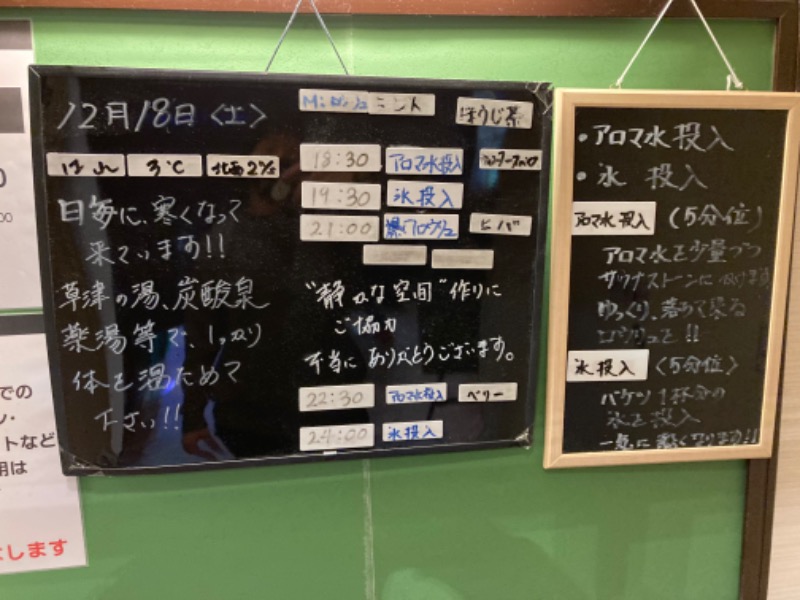 での
ン・
ートなど
用は
します
12月18日〈土〉
3℃
日毎に、寒くなって
来ています!!
草津の湯、炭酸泉
薬湯等で、しっかり
体を温ためて
下さい!!
ミント
ほうじ茶
18:30 アロマ水投入
19:30 氷投入
21:00 爆アロウリュ ヒバ
"静かな空間"作りに
ご協力
本当に ありがとうございます。
22:30 アロマ水投入 ベリー
24:00 氷投入
・アロマ水投入
・氷 投入
アロマ水投入 (5分位)
アロマ水を少量づつ
サウナストーンに
ゆっくり、落ちて来る
!!
氷投入 〈5分位〉
バケツ1杯分の
氷を投入
一気に熱くなります!!